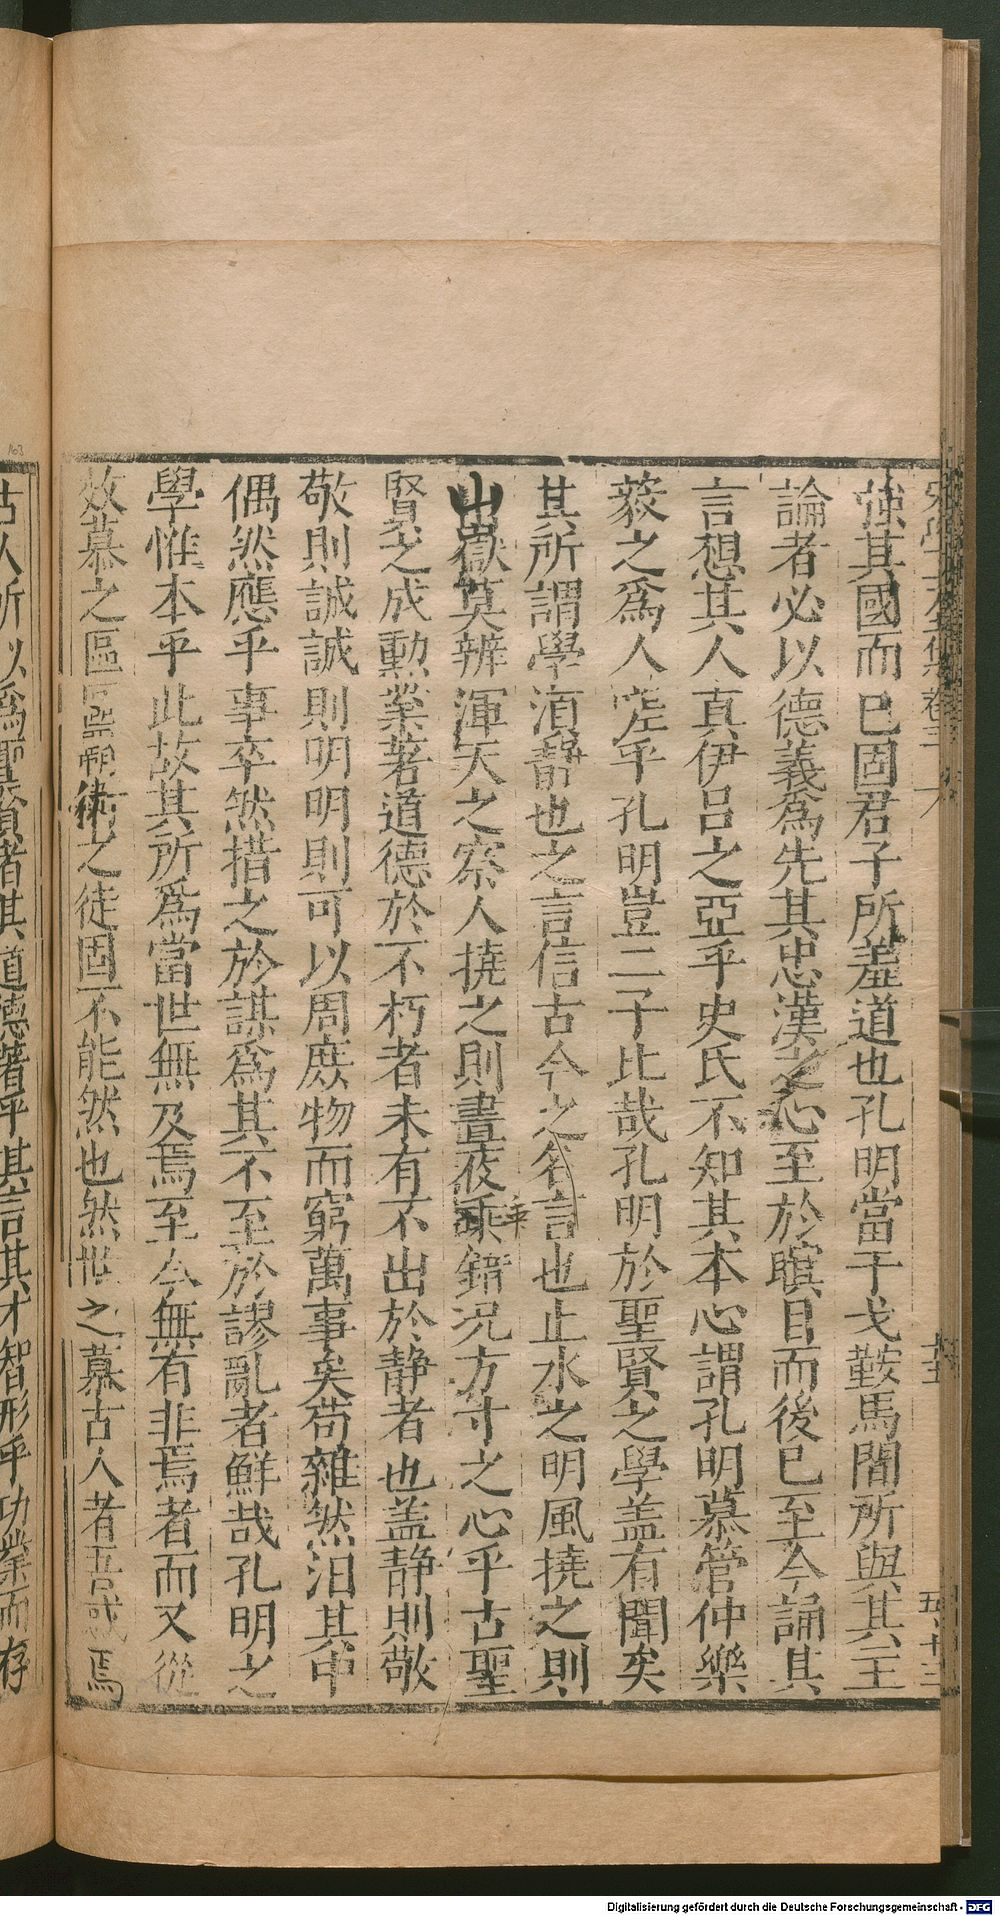 強其國而已固君子所羞道也孔明當干戈鞍馬間所與其主
論者必以德義爲先其忠漢之心至於瞑目而後已至今誦其
言想其人真伊呂之亞乎史氏不知其本心謂孔明慕管仲樂
毅之爲人嗟乎孔明豈二子比哉孔明於聖賢之學盖有聞矣
其所謂學湏靜也之言信古今之名言也止水之明風撓之則
山嶽莫辨渾天之察人撓之則晝夜乖錯况方寸之心乎古聖
賢之成勳業著道德於不朽者未有不出於静者也盖静則敬
敬則誠誠則明明則可以周庶物而窮萬事矣苟雜然汨其中
偶然應乎事卒然措之於謀爲其不至於謬亂者鮮哉孔明之
學惟本乎此故其所爲當世無及焉至今無有非焉者而又從
效慕之區區霸術之徒固不能然也然世之慕古人者吾惑焉
古人所以爲聖賢者其道德著乎其言其才智形乎功業而存
Digitalisierung gefördert durch die Deutsche Forschungsgemeinschaft - DFG